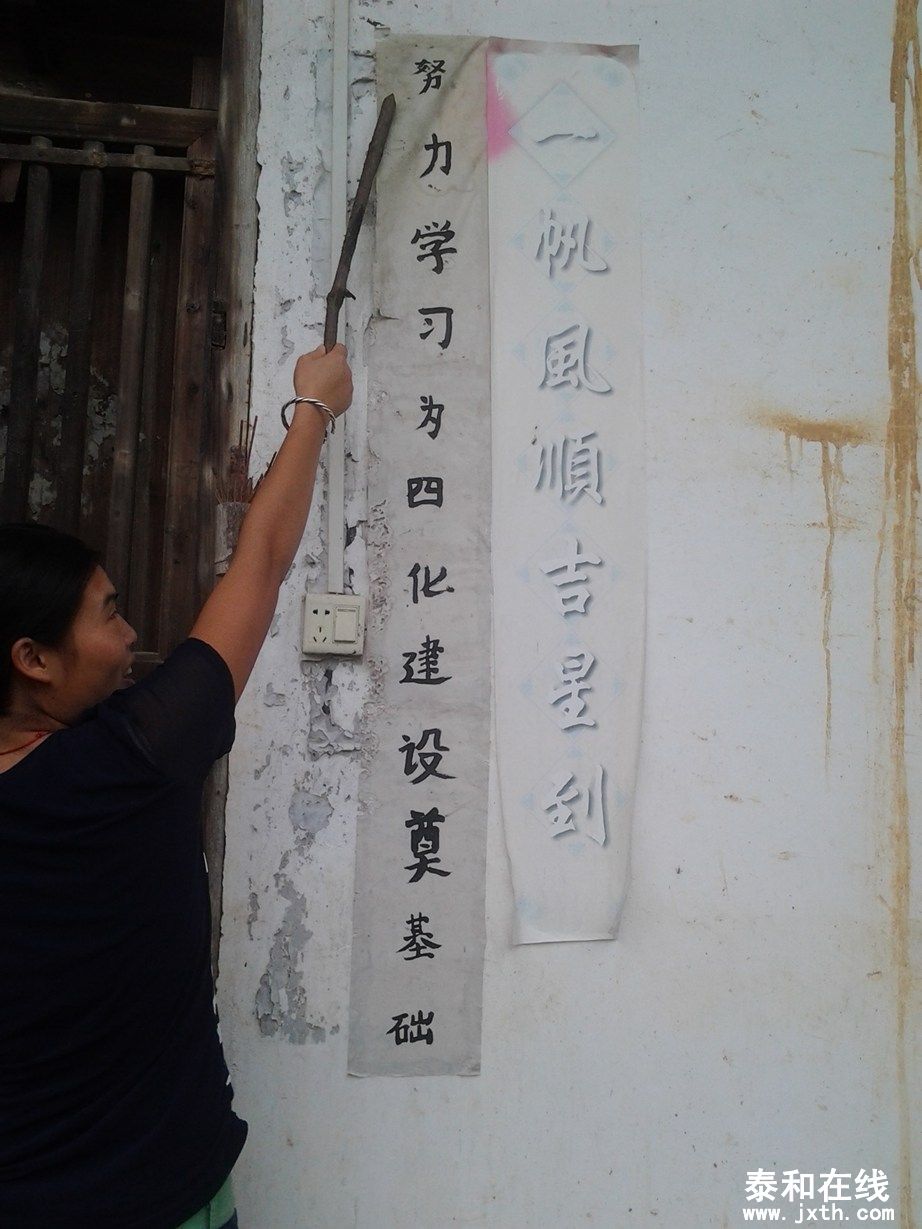 努力学习为四化建设奠基础
一帆風順吉星到
泰和在线
www.jxth.com